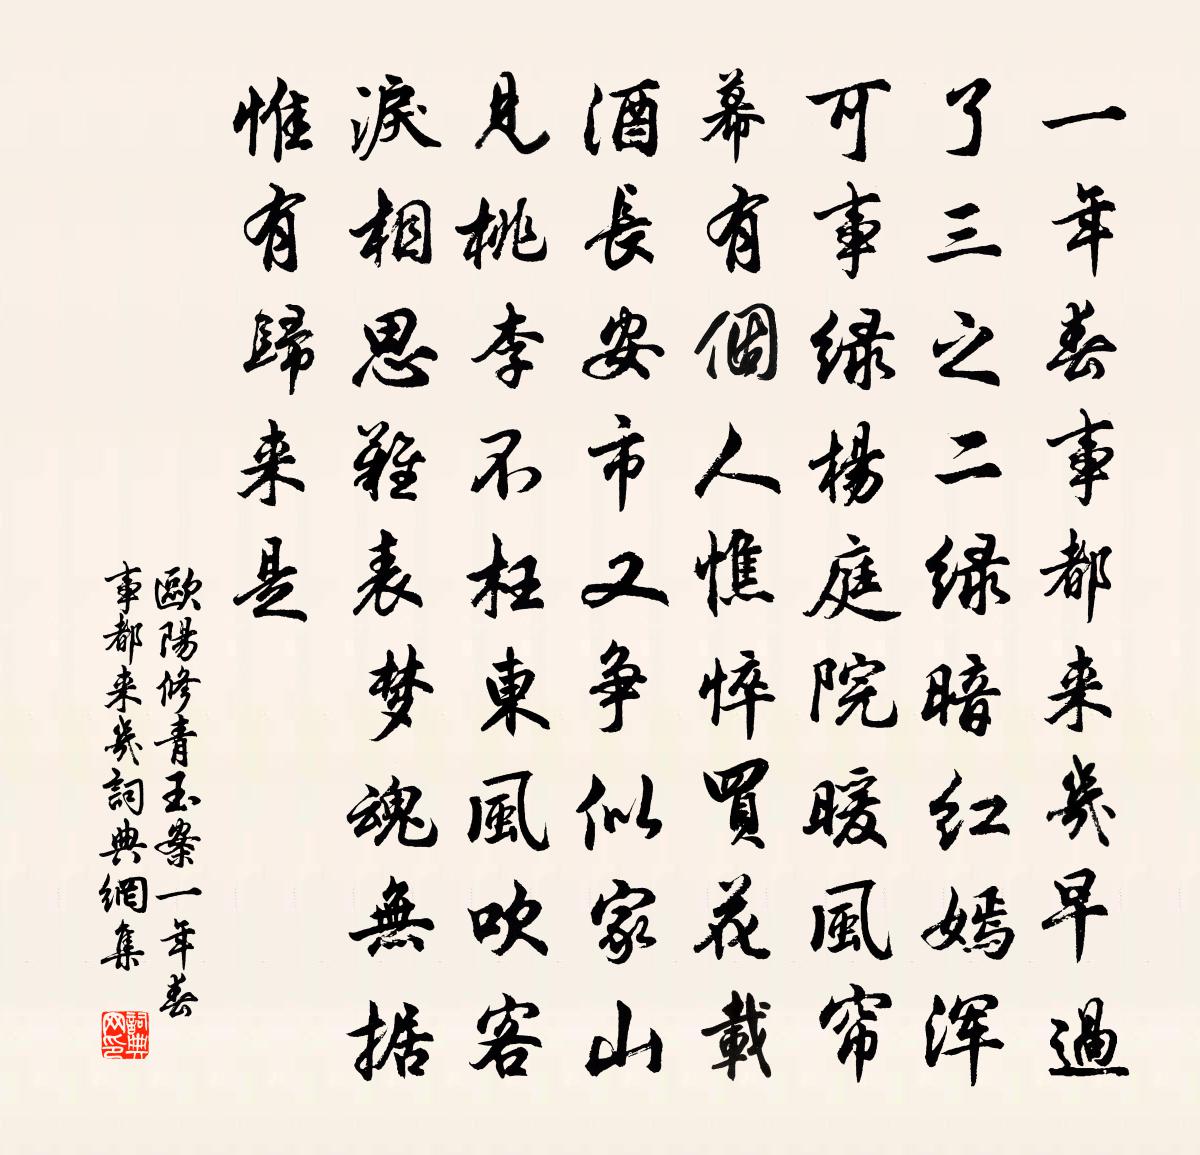 一年春事都来幾早過
了三之二绿暗红嫣浑
可事绿楊庭院暖風帘
幕有個人憔悴買花載
酒長安市又争似家山
見桃李不枉東風吹客
淚相思難表梦魂無据
惟有歸来是
歐陽修青玉案一年春
事都来幾詞典網集
詞典网印